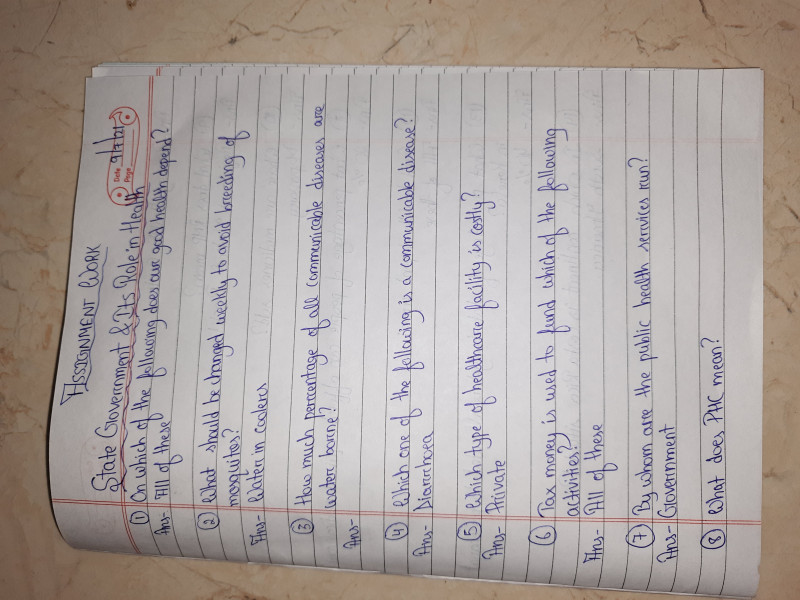 ASSIGNMENT WORK
Date 9/7/21
Page
State Government & Its Role in Health
① On which of the following does our good health depend?
Ans- All of these
② What should be changed weekly to avoid breeding of
mosquitos?
Ans- Water in coolers
③ How much percentage of all communicable diseases are
water borne?
Ans-
④ Which one of the following is a communicable disease?
Ans- Diarrohoea
⑤ Which type of healthcare facility is costly?
Ans- Private
⑥ Tax money is used to fund which of the following
activities?
Ans- All of these
⑦ By whom are the public health services run?
Ans- Government
⑧ What does PHC mean?